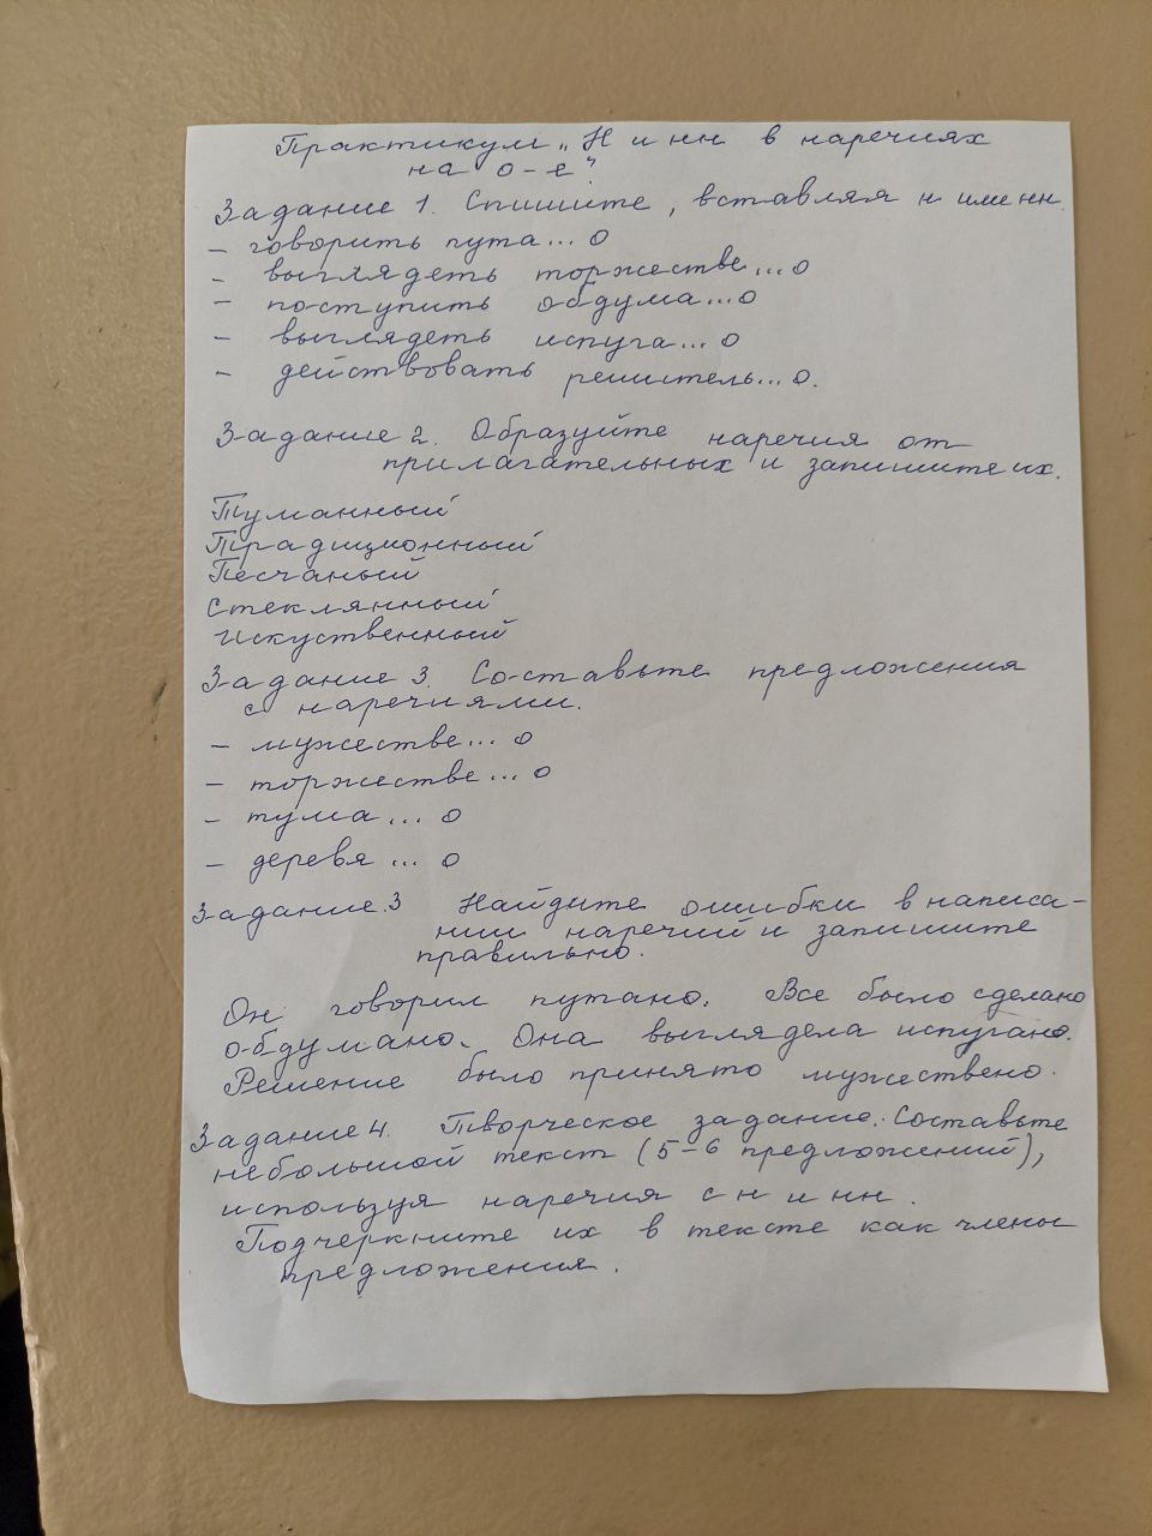 Практикум „Н и нн в наречиях
на о-е".
Задание 1. Спишите, вставляя н или нн.
- говорить пута...о
- выглядеть торжестве...о
- поступить обдума...о
- выглядеть испуга...о
- действовать решитель...о.
Задание 2. Образуйте наречия от
прилагательных и запишите их.
Туманный
Традиционный
Песчаный
Стеклянный
Искуственный
Задание 3. Составьте предложения
с наречиями.
- мужестве...о
- торжестве...о
- тума...о
- деревя...о
Задание.3 Найдите ошибки в написа-
нии наречий и запишите
правильно.
Он говорил путано. Все было сделано
обдумано. Она выглядела испугано.
Решение было принято мужествено.
Задание 4. Творческое задание. Составьте
небольшой текст (5-6 предложений),
используя наречия с н и нн.
Подчеркните их в тексте как члены
предложения.